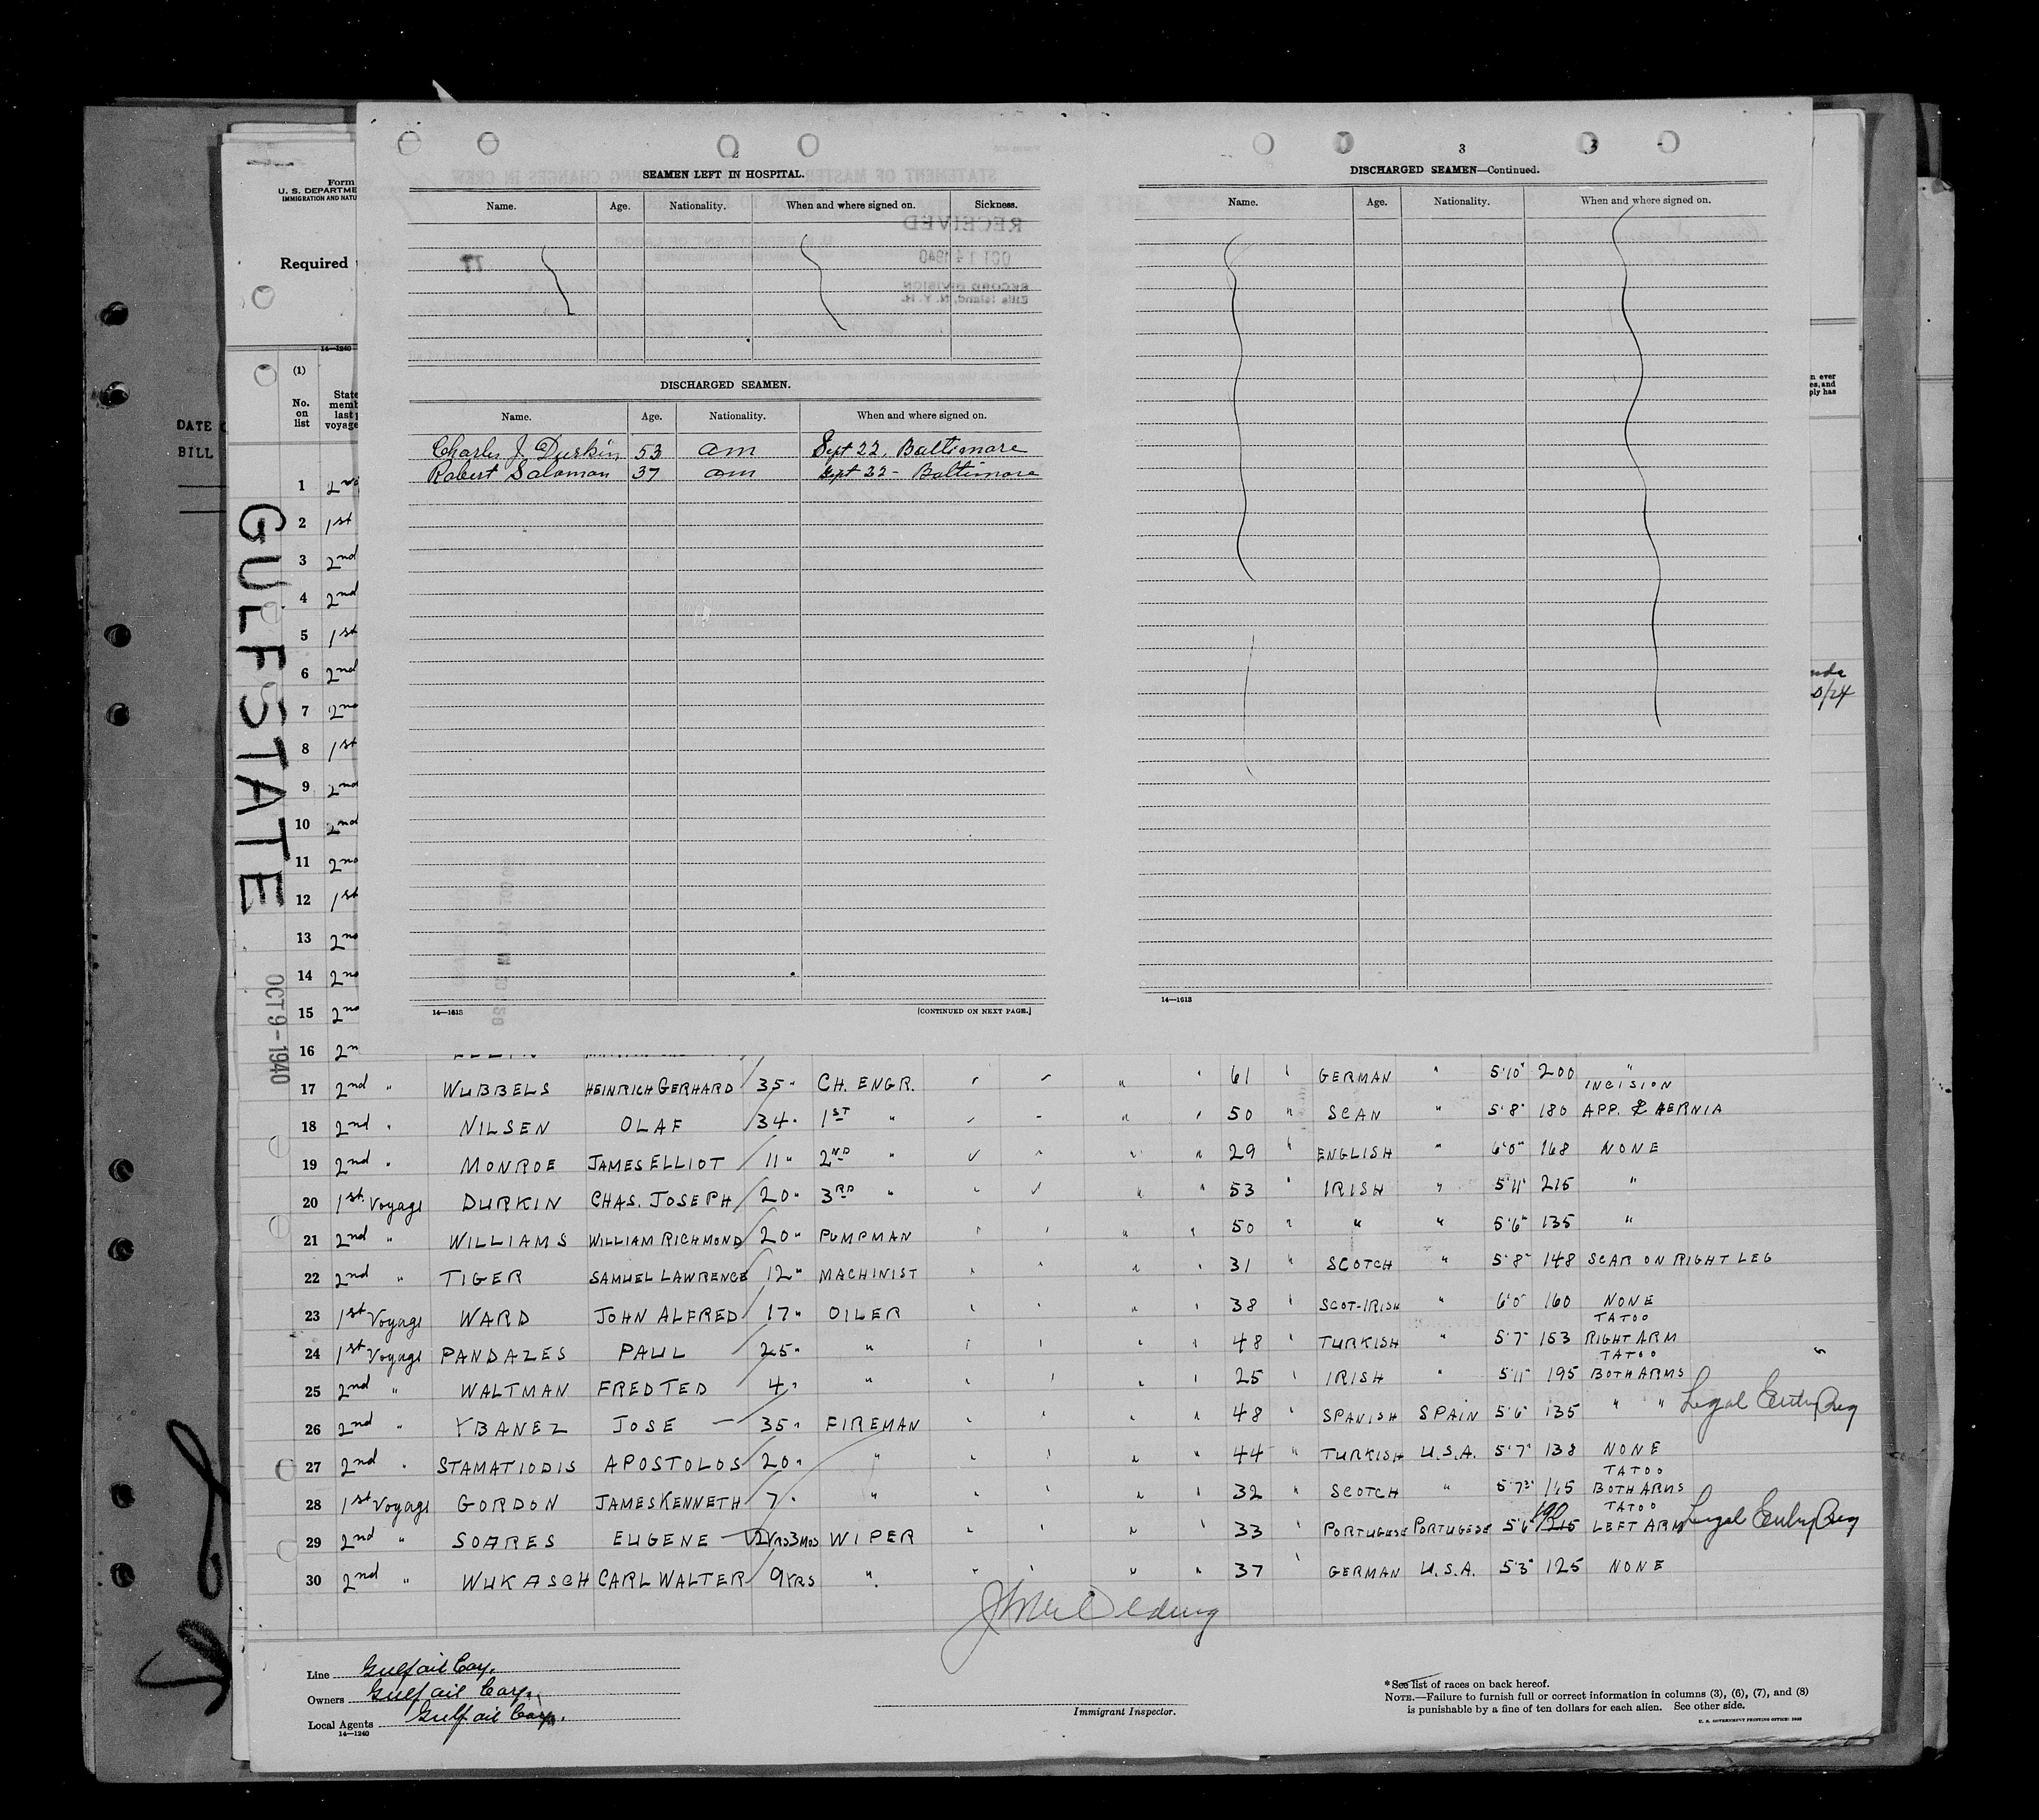 3
SEAMEN LEFT IN HOSPITAL.
Name. Age. Nationality. When and where signed on. Sickness.
RECEIVED
OCT 14 1940
RECORD DIVISION
Ellis Island, N. Y. H.
77
DISCHARGED SEAMEN.
Name. Age. Nationality. When and where signed on.
Charles J. Durkin 53 am Sept 22, Baltimore
Robert Saloman 37 am Sept 22 - Baltimore
14—1613 [CONTINUED ON NEXT PAGE.]
DISCHARGED SEAMEN—Continued.
Name. Age. Nationality. When and where signed on.
14—1613
DATE
BILL
Form
U. S. DEPARTME
IMMIGRATION AND NATU
Required
14—1240
(1)
No. on list
State
memb
last
voyage
n ever
es, and
ply has
GULFSTATE
OCT 9-1940
1 2nd
2 1st
3 2nd
4 2nd
5 1st
6 2nd
7 2nd
8 1st
9 2nd
10 2nd
11 2nd
12 1st
13 2nd
14 2nd
15 2nd
16 2n
0/24
17 2nd " WUBBELS HEINRICH GERHARD 35 " CH. ENGR. " 61 " GERMAN " 5'10" 200 "
18 2nd " NILSEN OLAF 34 " 1ST " " 50 " SCAN " 5'8" 180 INCISION APP. & HERNIA
19 2nd " MONROE JAMES ELLIOT 11 " 2ND " " 29 " ENGLISH " 6'0" 168 NONE
20 1st Voyage DURKIN CHAS. JOSEPH 20 " 3RD " " 53 " IRISH " 5'11" 215 "
21 2nd " WILLIAMS WILLIAM RICHMOND 20 " PUMPMAN " 50 " " " 5'6" 135 "
22 2nd " TIGER SAMUEL LAWRENCE 12 " MACHINIST " 31 " SCOTCH " 5'8" 148 SCAR ON RIGHT LEG
23 1st Voyage WARD JOHN ALFRED 17 " OILER " 38 " SCOT-IRISH " 6'0" 160 NONE
24 1st Voyage PANDAZES PAUL 25 " " " 48 " TURKISH " 5'7" 153 TATOO RIGHT ARM
25 2nd " WALTMAN FRED TED 4 " " " 25 " IRISH " 5'11" 195 TATOO BOTH ARMS
26 2nd " YBANEZ JOSE — 35 " FIREMAN " 48 " SPANISH SPAIN 5'6" 135 " " Legal Entry
27 2nd " STAMATIODIS APOSTOLOS 20 " " " 44 " TURKISH U.S.A. 5'7" 138 NONE
28 1st Voyage GORDON JAMES KENNETH 7 " " " 32 " SCOTCH " 5'7" TATOO BOTH ARMS
29 2nd " SOARES EUGENE — 2YRS 3MOS WIPER " 33 " PORTUGESE PORTUGESE 5'6" 190 215 TATOO LEFT ARM Legal Entry
30 2nd " WUKASCH CARL WALTER 9YRS " " 37 " GERMAN U.S.A. 5'3" 125 NONE
Line Gulf oil Corp.
Owners Gulf oil Corp.
Local Agents Gulf oil Corp.
14—1240
Immigrant Inspector.
*See list of races on back hereof.
NOTE.—Failure to furnish full or correct information in columns (3), (6), (7), and (8)
is punishable by a fine of ten dollars for each alien. See other side.
U. S. GOVERNMENT PRINTING OFFICE